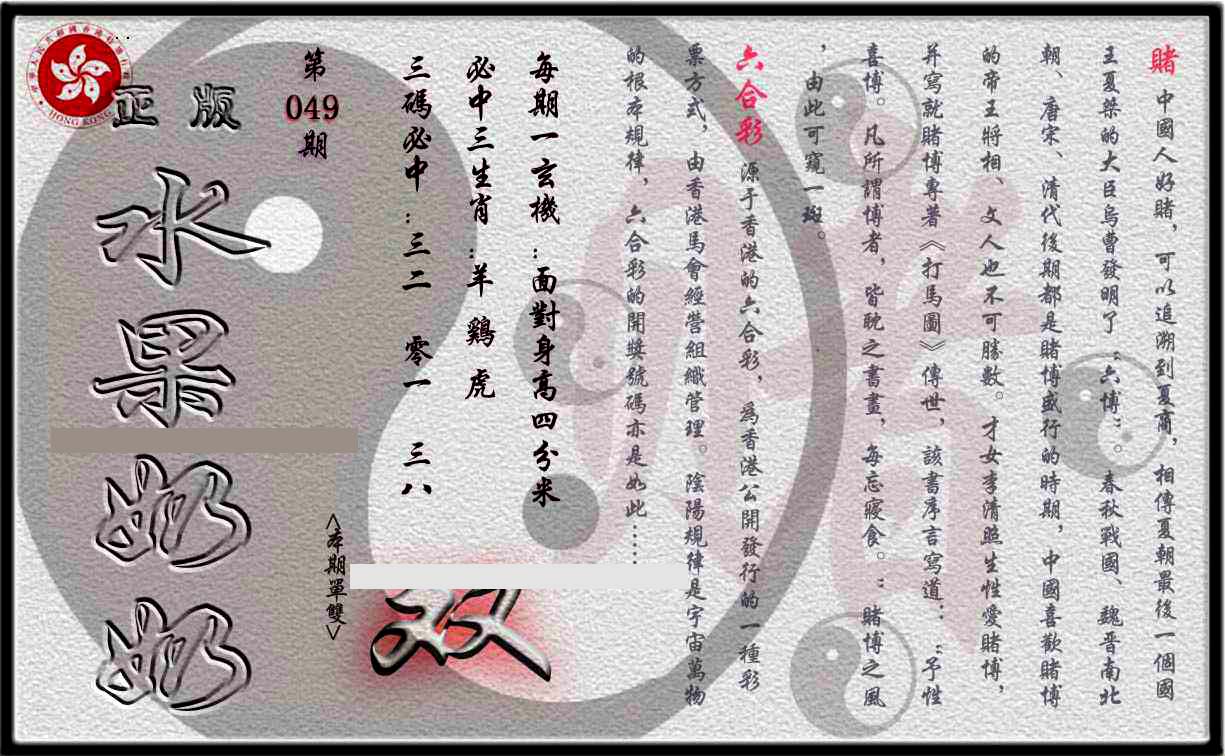 賭 中國人好賭，可以追溯到夏商，相傳夏朝最後一個國
王夏桀的大臣烏曹發明了“六博”。春秋戰國、魏晋南北
朝、唐宋、清代後期都是賭博盛行的時期，中國喜歡賭博
的帝王將相、文人也不可勝數。才女李清照生性愛賭博，
并寫就賭博專著《打馬圖》傳世，該書序言寫道：“予性
喜博。凡所謂博者，皆耽之書畫，每忘寢食。”賭博之風
，由此可窺一斑。
六合彩 源于香港的六合彩，爲香港公開發行的一種彩
票方式，由香港馬會經營組織管理。陰陽規律是宇宙萬物
的根本規律，六合彩的開獎號碼亦是如此……
每期一玄機：面對身高四分米
必中三生肖：羊 鷄 虎
三碼必中：三二 零一 三八
第
049
期
<本期單雙>
双
正版
水果奶奶
HONG KONG